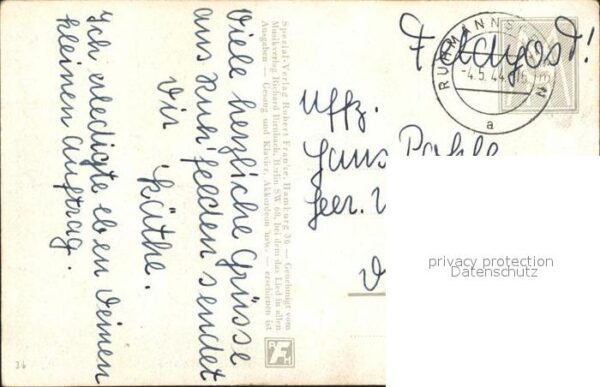 Viele herzliche Grüsse
aus Ruhfelden sendet
Dir
Käthe.
Ich erledigte eben Deinen
kleinen Auftrag.
Spezial-Verlag Robert Franke, Hamburg 36 — Genehmigt vom
Musikverlag Richard Birnbach, Berlin SW 68, bei dem das Lied in allen
Ausgaben — Gesang und Klavier, Akkordeon usw. — erschienen ist
RFH
36
Feldpost!
RUHMANNS
-4.5.44
a
Uffz.
Hans
privacy protection
Datenschutz